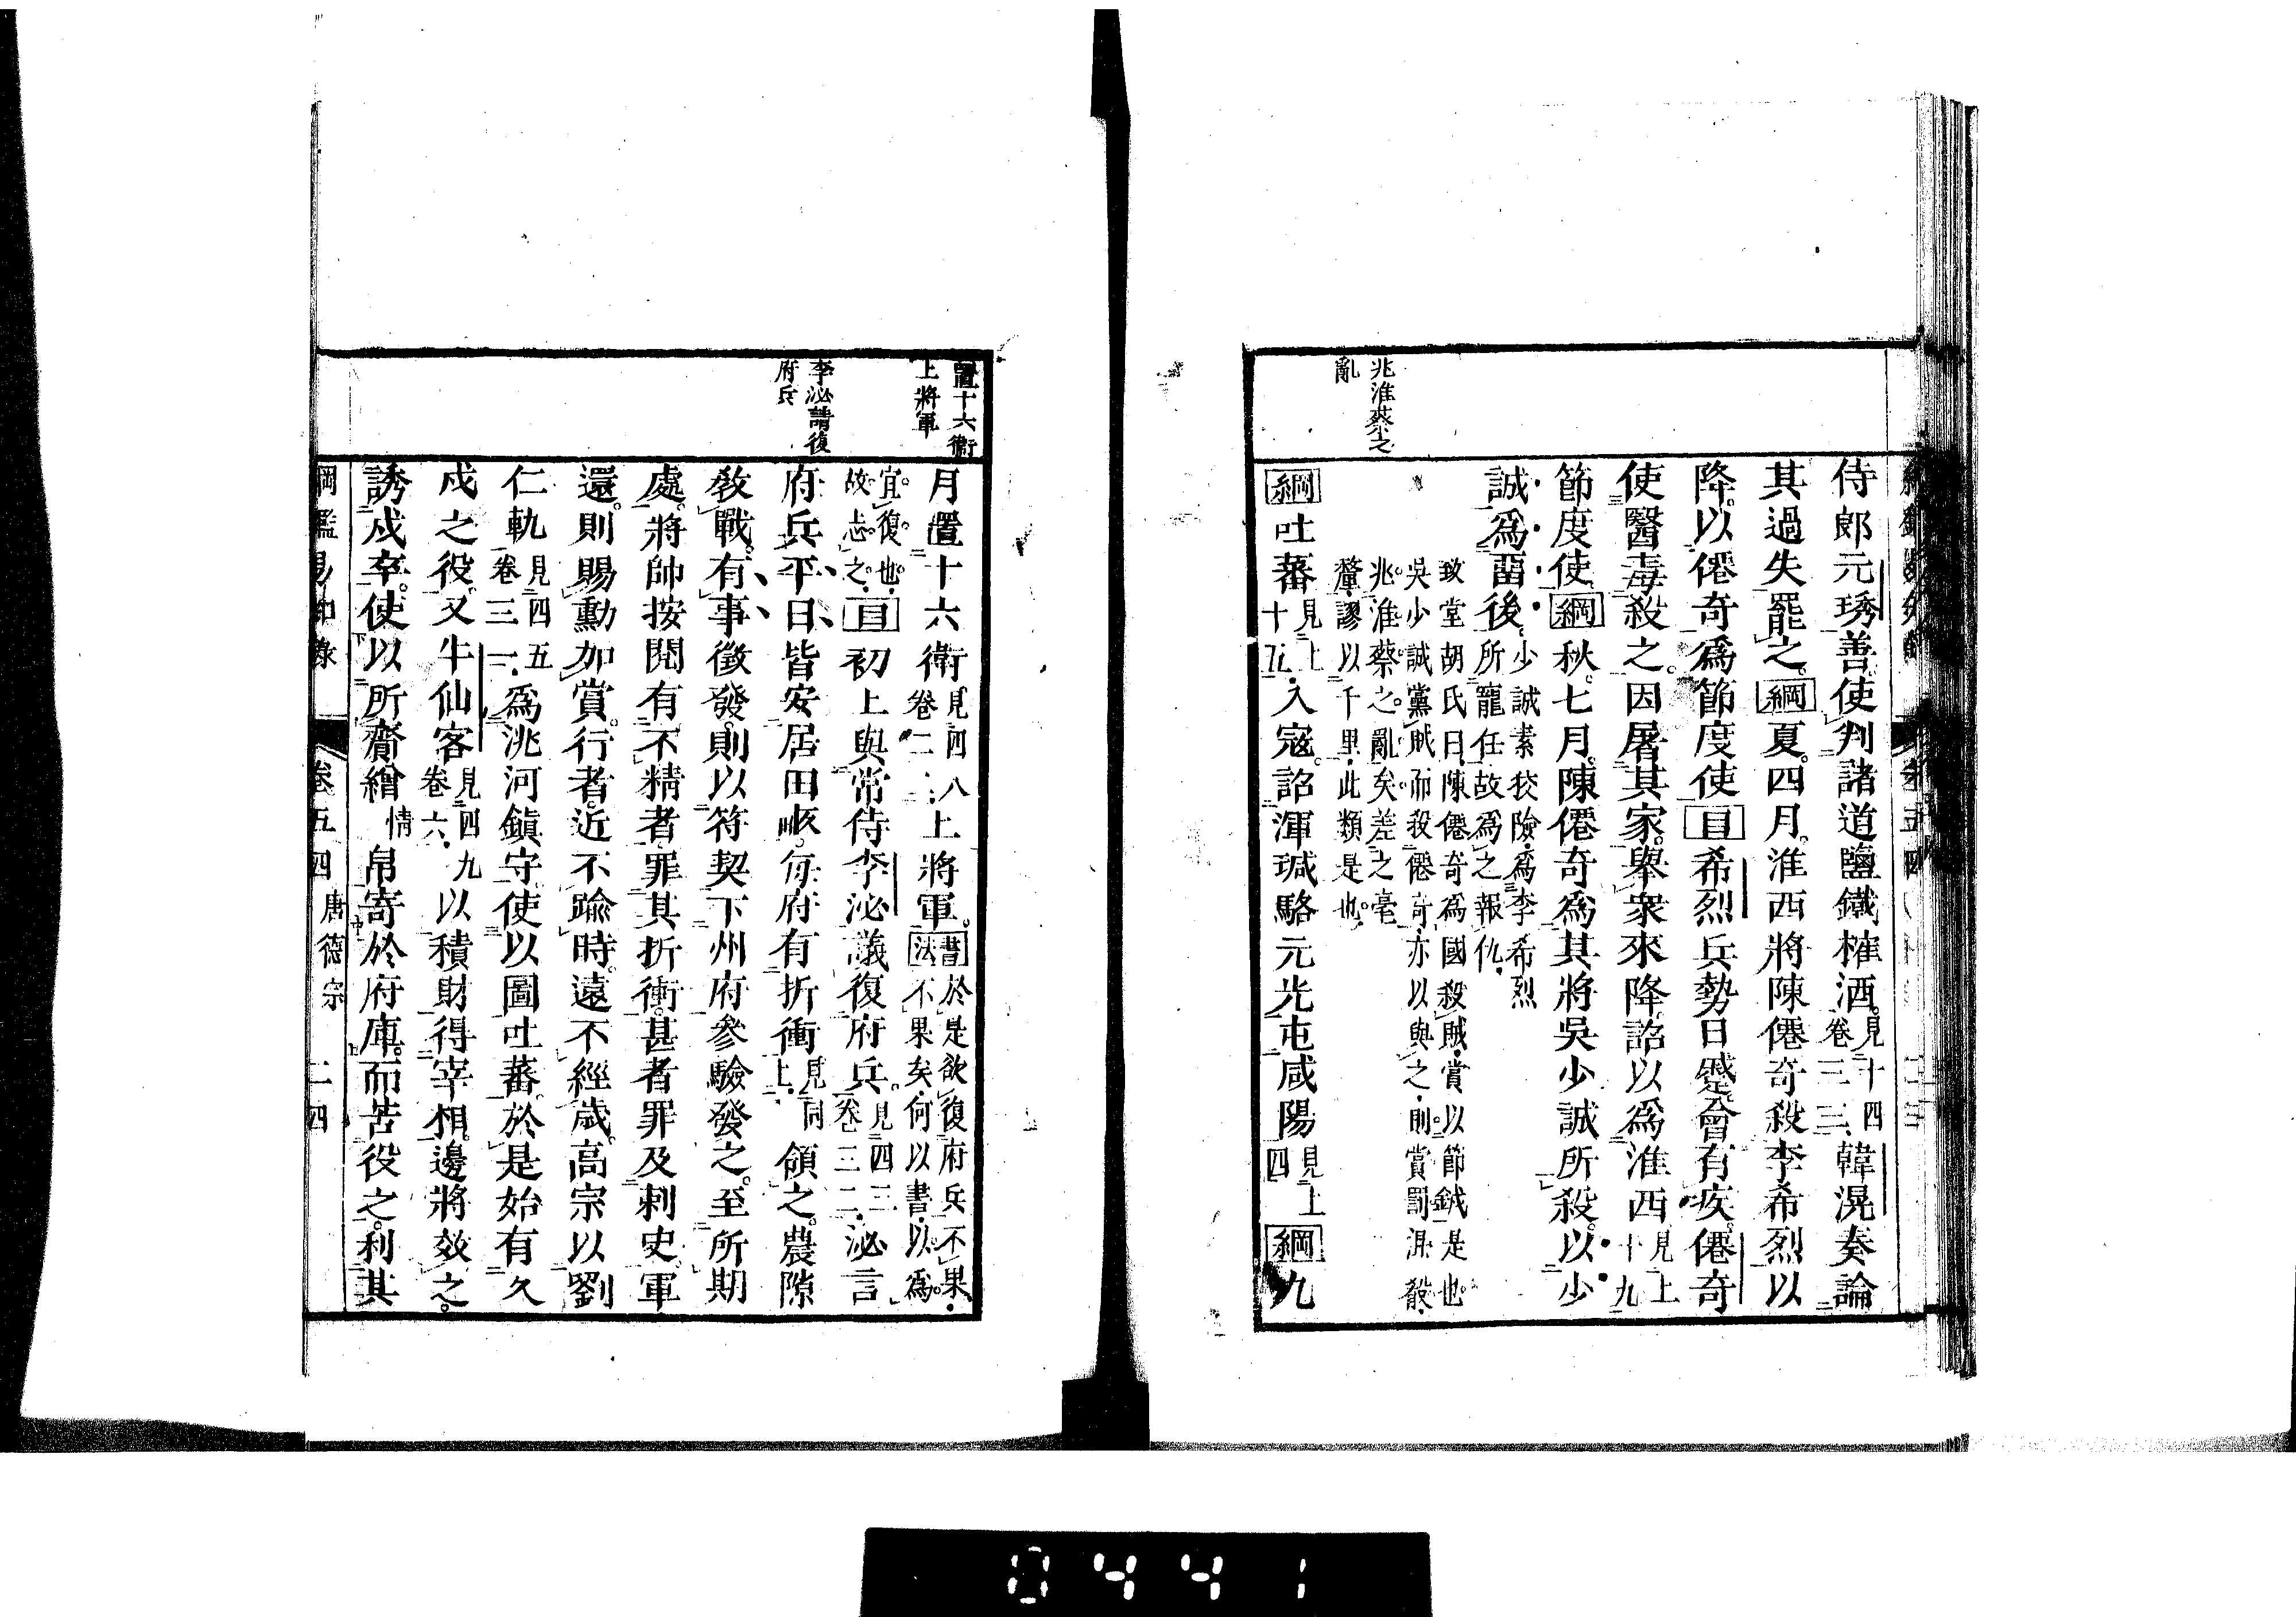 兆淮蔡之
亂
侍郎元琇善使判諸道鹽鐵榷酒見十四卷三三韓滉奏論
其過失罷之綱夏四月淮西將陳僊奇殺李希烈以
降以僊奇爲節度使目希烈兵勢日蹙會有疾僊奇
使醫毒殺之因屠其家舉衆來降詔以爲淮西見上十九
節度使綱秋七月陳僊奇爲其將吳少誠所殺以少
誠爲畱後少誠素狡險爲李希烈
所寵任故爲之報仇
致堂胡氏曰陳僊奇爲國殺賊賞以節鉞是也
吳少誠黨賊而殺僊奇亦以與之則賞罰混殽
兆淮蔡之亂矣差之毫
釐謬以千里此類是也
綱吐蕃見上十五入寇詔渾瑊駱元光屯咸陽見上四綱九
置十六衛
上將軍
李泌請復
府兵
月置十六衛見四八卷二上將軍書法於是欲復府兵不果
不果矣何以書以爲
宜復也
故志之目初上與常侍李泌議復府兵見四三卷三二泌言
府兵平日皆安居田畝每府有折衝見同上領之農隙
敎戰有事徵發則以符契下州府參驗發之至所期
處將帥按閱有不精者罪其折衝甚者罪及刺史軍
還則賜勳加賞行者近不踰時遠不經歲高宗以劉
仁軌見四五卷三一爲洮河鎭守使以圖吐蕃於是始有久
戍之役又牛仙客見四九卷六以積財得宰相邊將效之
誘戍卒使以所齎繒情帛寄於府庫而苦役之利其
綱鑑易知錄 卷五四 唐德宗 二四
0441